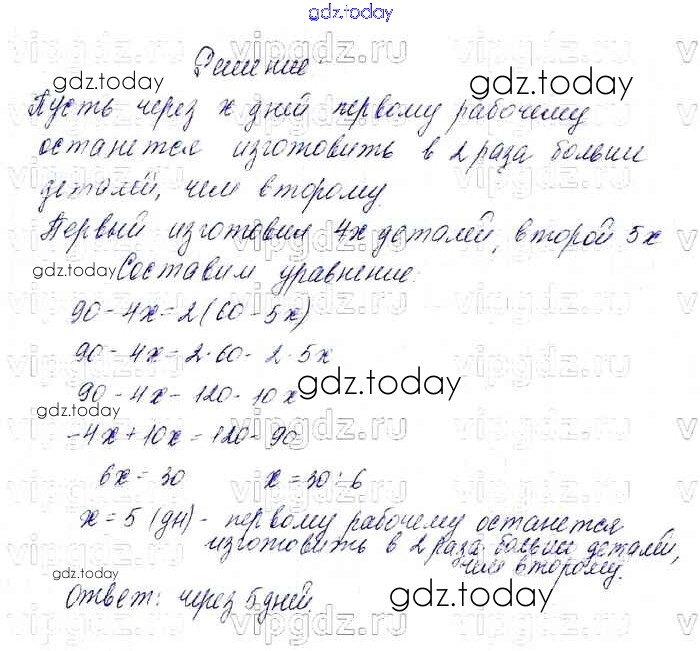 gdz.today
Решение:
gdz.today gdz.today
Пусть через x дней первому рабочему
останется изготовить в 2 раза больше
деталей, чем второму.
Первый изготовил 4x деталей, второй 5x
gdz.today Составим уравнение:
90 - 4x = 2(60 - 5x)
90 - 4x = 2·60 - 2·5x
90 - 4x - 120 - 10x
gdz.today
gdz.today
-4x + 10x = 120 - 90
6x = 30 x = 30 : 6
x = 5 (дн) - первому рабочему останется
изготовить в 2 раза больше деталей,
чем второму.
gdz.today
Ответ: через 5 дней.
gdz.today